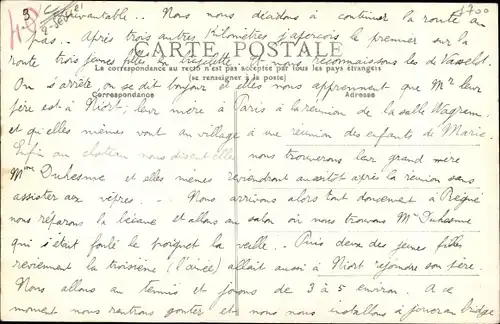 épouvantable.. Nous nous décidons à continuer la route au
pas.. Après trois autres Kilomètres j'aperçois le premier sur la
CARTE POSTALE
route trois jeunes filles en et nous reconnaissons les de Vasselot.
La correspondance au recto n'est pas acceptée par tous les pays étrangers
(se renseigner à la poste)
On s'arrête, on se dit bonjour et elles nous apprennent que Mr leur
Correspondance
Adresse
père est à Niort; leur mère à Paris à la réunion de la salle Wagram
et qu'elles mêmes vont au village à une réunion des enfants de Marie
Enfin au château nous disent elles nous trouverons leur grand mère
Mme Duhesme et elles mêmes reviendront aussitôt après la réunion sans
assister aux vêpres. - Nous arrivons alors tout doucement à
nous réparons la bécane et allons au salon où nous trouvons Me Duhesme
qui s'était foulé le poignet la veille.. Puis deux des jeunes filles
reviennent la troisième (l'aînée) allait aussi à Niort rejoindre son père.
Nous allons au tennis et jouons de 3 à 5 environ. A ce
moment nous rentrons goûter et nous nous installons à jouer au bridge